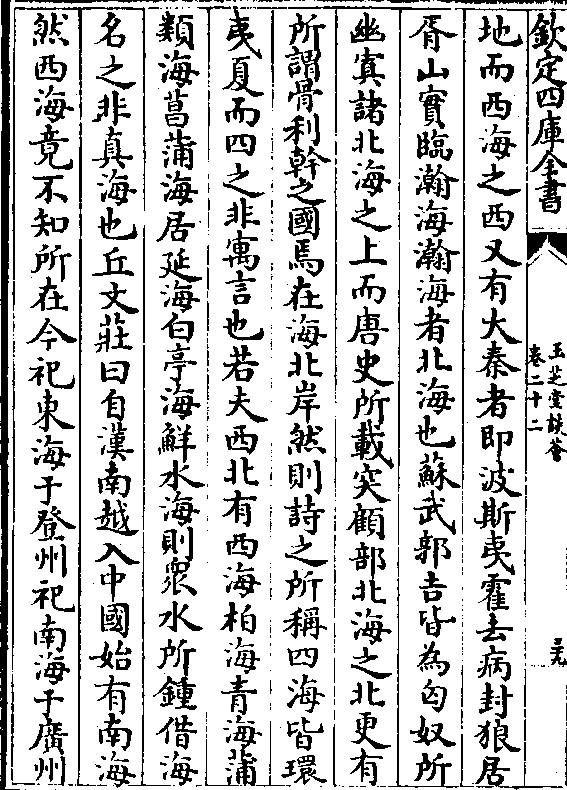 欽定四庫全書
玉芝堂談薈
卷二十二
三九
地而西海之西又有大秦者即波斯夷霍去病封狼居
胥山實臨瀚海瀚海者北海也蘇武郭吉皆為匈奴所
幽寘諸北海之上而唐史所載突顧部北海之北更有
所謂骨利幹之國焉在海北岸然則詩之所稱四海皆環
夷夏而四之非寓言也若夫西北有西海柏海青海蒲
類海菖蒲海居延海白亭海鮮水海則衆水所鍾借海
名之非真海也丘文莊曰自漢南越入中國始有南海
然西海竟不知所在今祀東海于登州祀南海于廣州